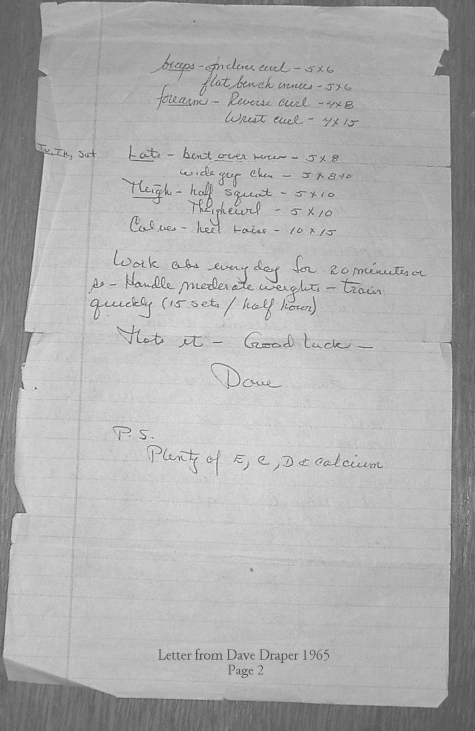 biceps - incline curl - 5x6
flat bench - 5x6
forearm - Reverse curl - 4x8
Wrist curl - 4x15
Tu, Th, Sat Lats - bent over rows - 5x8
wide grip chin - 5x8-10
Thigh - half squat - 5x10
Thigh curl - 5x10
Calves - heel raise - 10x15
Work abs every day for 20 minutes or
so - Handle moderate weights - train
quickly (15 sets / half hour)
That's it - Good luck -
Dave
P.S.
Plenty of E, C, D & calcium
Letter from Dave Draper 1965
Page 2